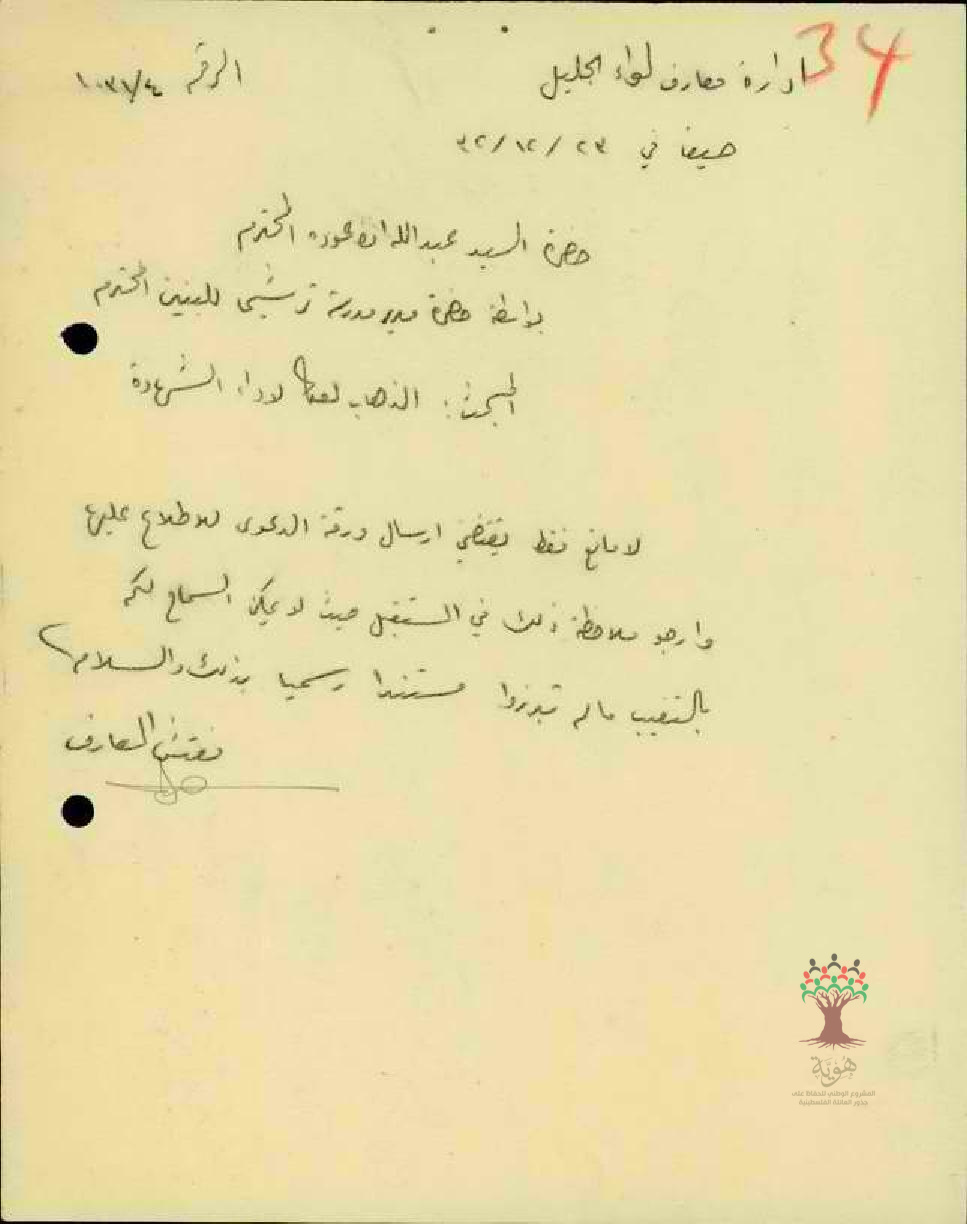 34
ادارة معارف لواء الجليل
الرقم ١٠٣١/٤
حيفا في ٢٣/١٢/٣٢
حضرة السيد عبدالله عوده المحترم
بواسطة حضرة مدير مدرسة ترشيحا للبنين المحترم
المبحث: الذهاب لعكا لاداء الشهادة
لا مانع فقط يقتضي ارسال ورقة الدعوى للاطلاع عليها
وارجو ملاحظة ذلك في المستقبل حيث لا يمكن السماح لكم
بالتغيب ما لم تبرزوا مستندا رسميا بذلك والسلام
مفتش المعارف
هُوِيَّة
المشروع الوطني للحفاظ على
جذور العائلة الفلسطينية